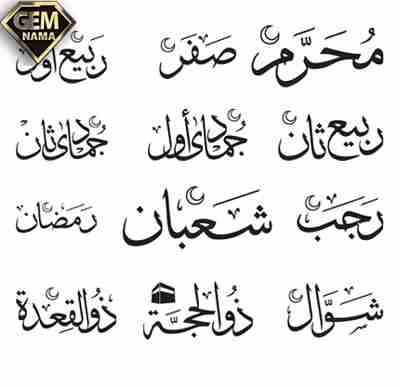 GEM
NAMA
مُحَرَّم صَفَر رَبيع أول
رَبيع ثان جُمادى أول جُمادى ثان
رَجَب شَعبان رَمَضان
شَوَّال ذُو الحجَّة ذُو القِعدة